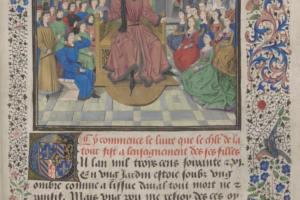 Cy commence le livre que le chlr de la
tour fist a lenseignement des ses filles
Il lan mil troys cens soixante & xi
En ung Jardin estoie soubz ung
ombre comme a lissue davril tout mort ne
Mais ung peu me resioy des ces oy